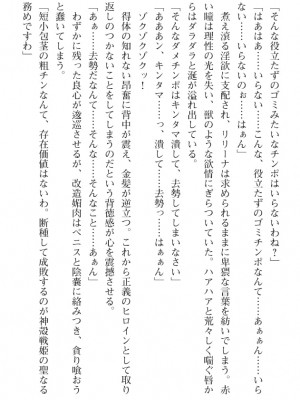 「そんな役立たずのゴミみたいなチンポはいらないわね?」
「はぁはぁ……いらない……こんな、役立たずのゴミチンポなんて……あぁぁん……いら
ない……いらないのぉ……はぁん」
　煮え滾る淫欲に支配され、リリーナは求められるままに卑猥な言葉を紡いでしまう。赤
い瞳は理性の光を失い、獣のような欲情にぎらついていた。ハアハアと荒々しく喘ぐ唇か
らはダラダラと涎が溢れ出している。
「そんなダメチンポはキンタマ潰して、去勢してしまいなさい」
「ああぁン、キンタマ……っ、潰して……去勢っ……はぁぁん」
　ゾクゾクゾクッ!
　得体の知れない昂奮に背中が震え、金髪が逆立つ。これから正義のヒロインとして取り
返しのつかないことをしてしまうのだという背徳感が心を震撼させる。
「あぁぁ……去勢だなんて……そんな……そんなこと……あぁん」
　わずかに残った良心が逡巡させるが、改造媚肉はペニスと陰嚢に絡みつき、貪り喰おう
と蠢いてしまう。
「短小包茎の粗チンなんて、存在価値はないわ。断種して成敗するのが神殻戦姫の聖なる
務めですわ」